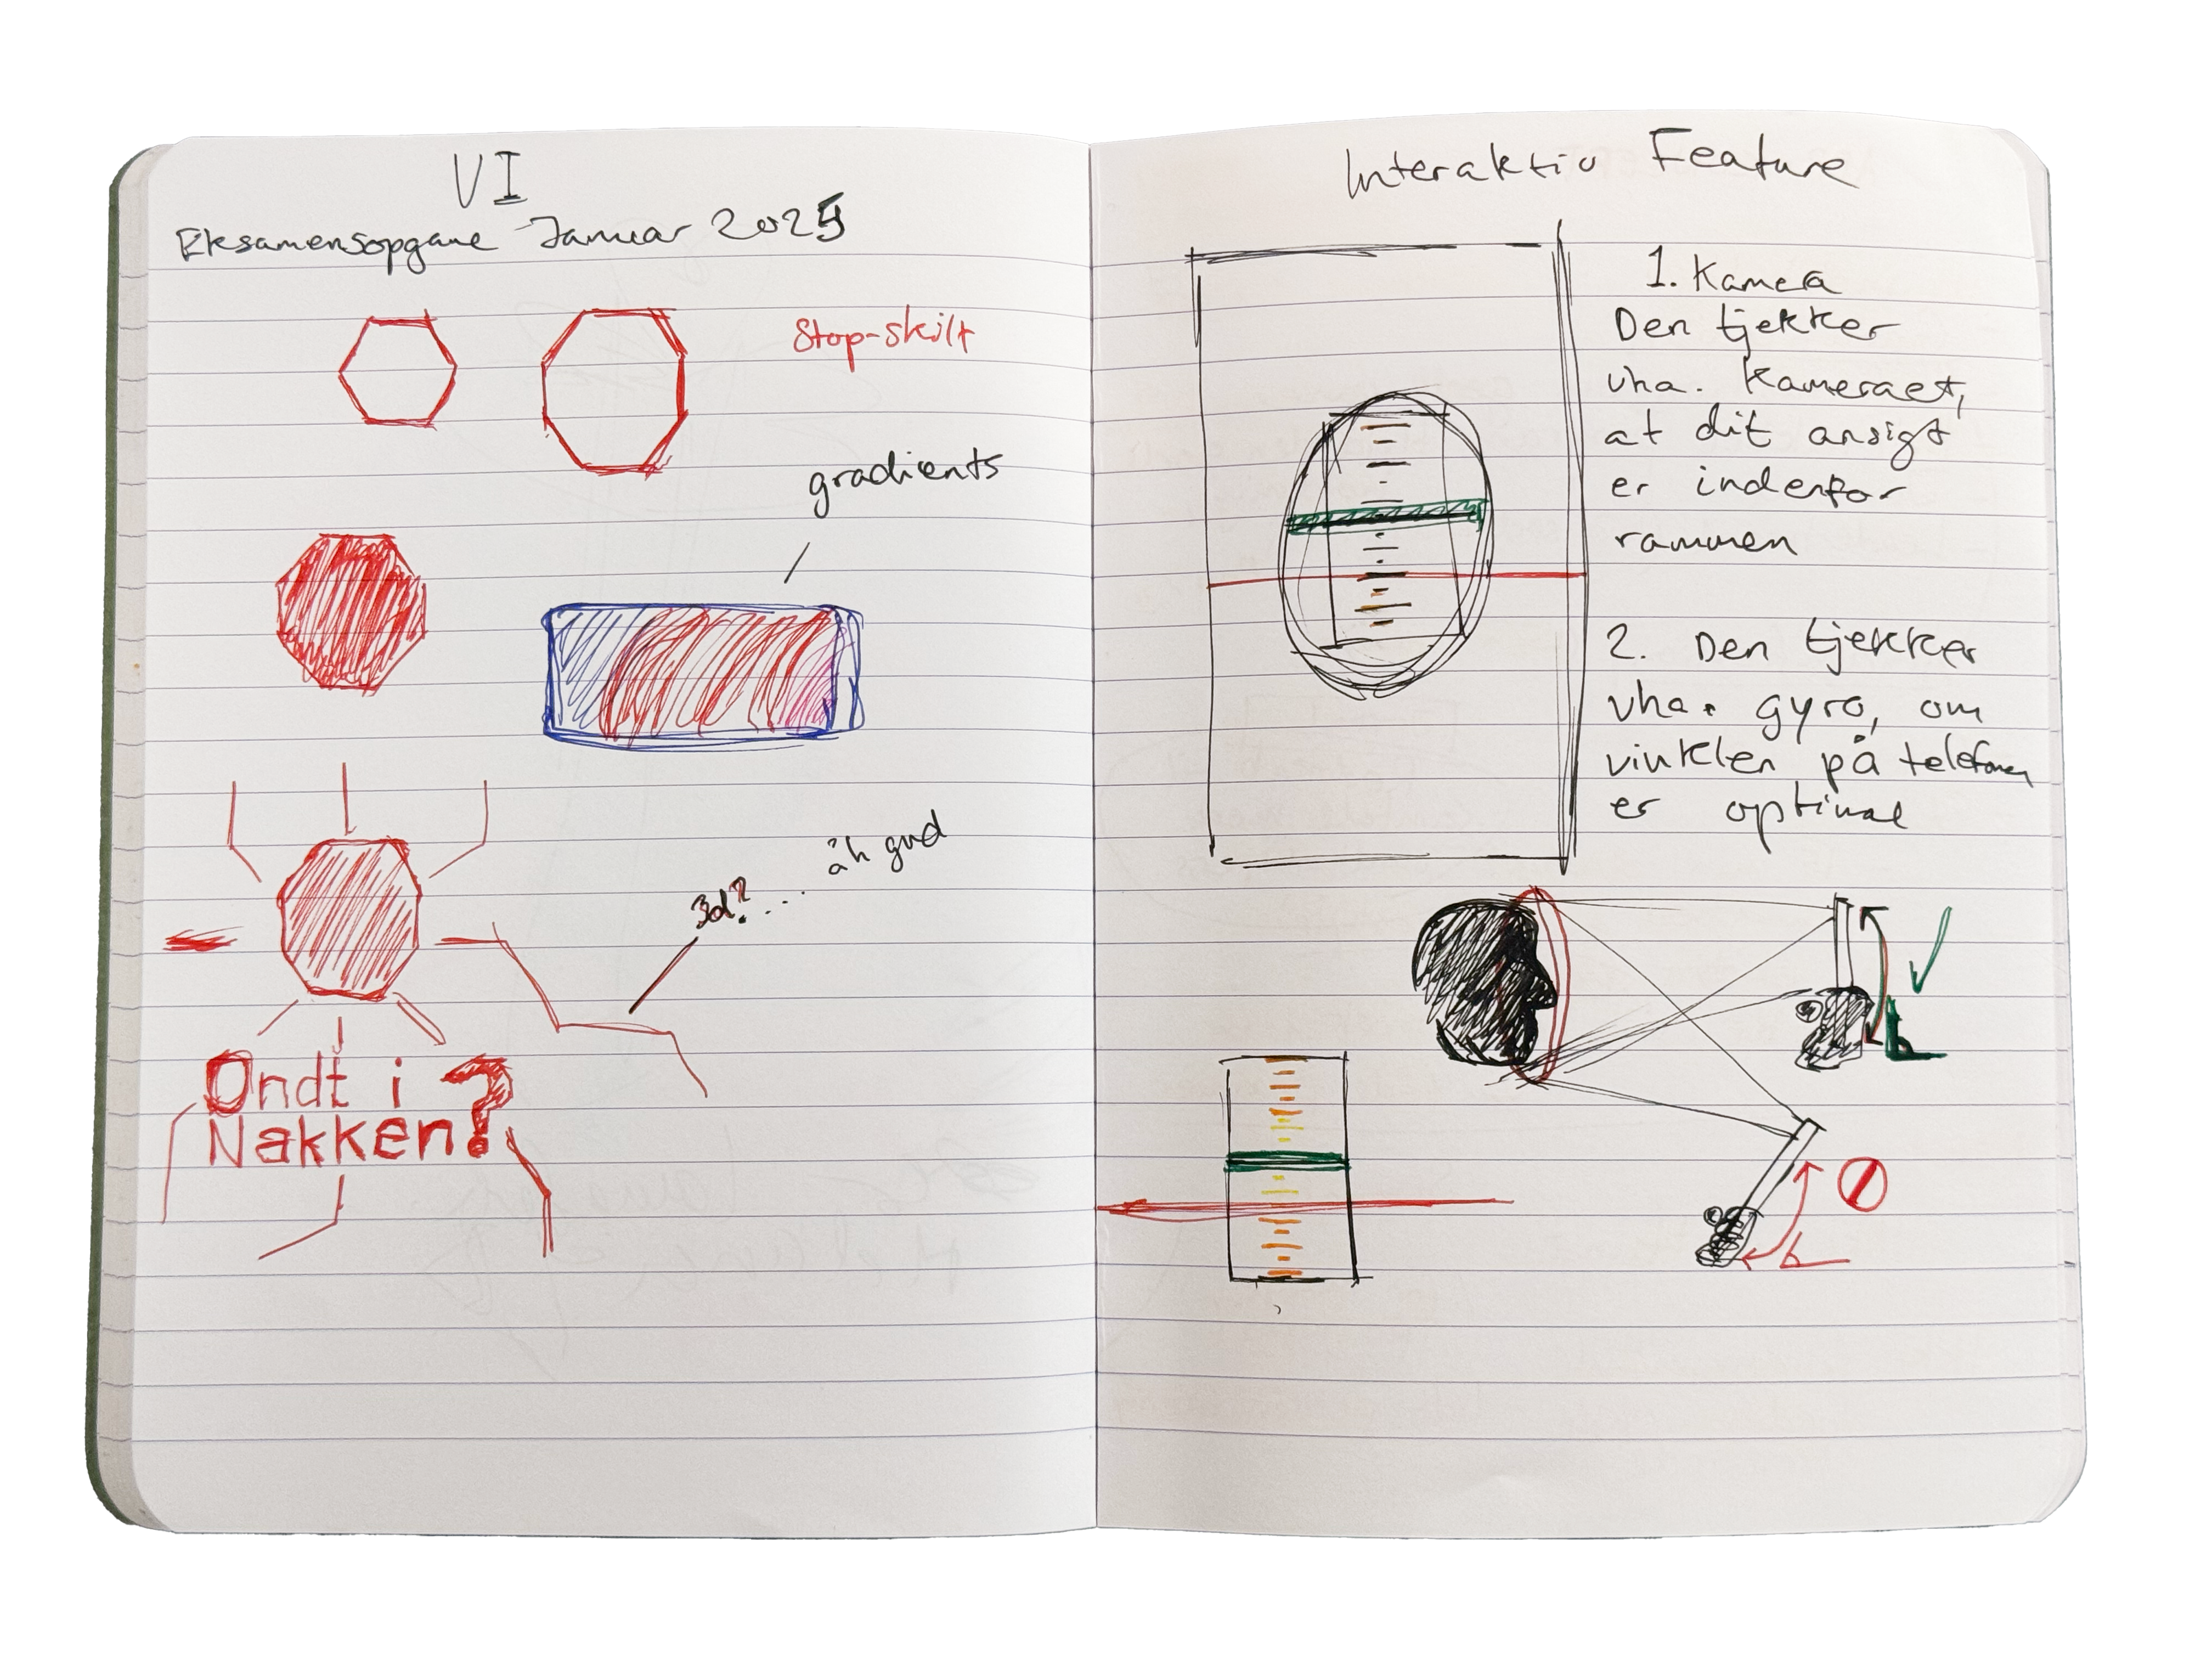 VI
Eksamensopgave Januar 2025
Stop-skilt
gradients
3d?....
åh gud
Ondt i
Nakken?
Interaktiv Feature
1. Kamera
Den tjekker
vha. Kameraet,
at dit ansigt
er indenfor
rammen
2. Den tjekker
vha. gyro, om
vinklen på telefonen
er optimal